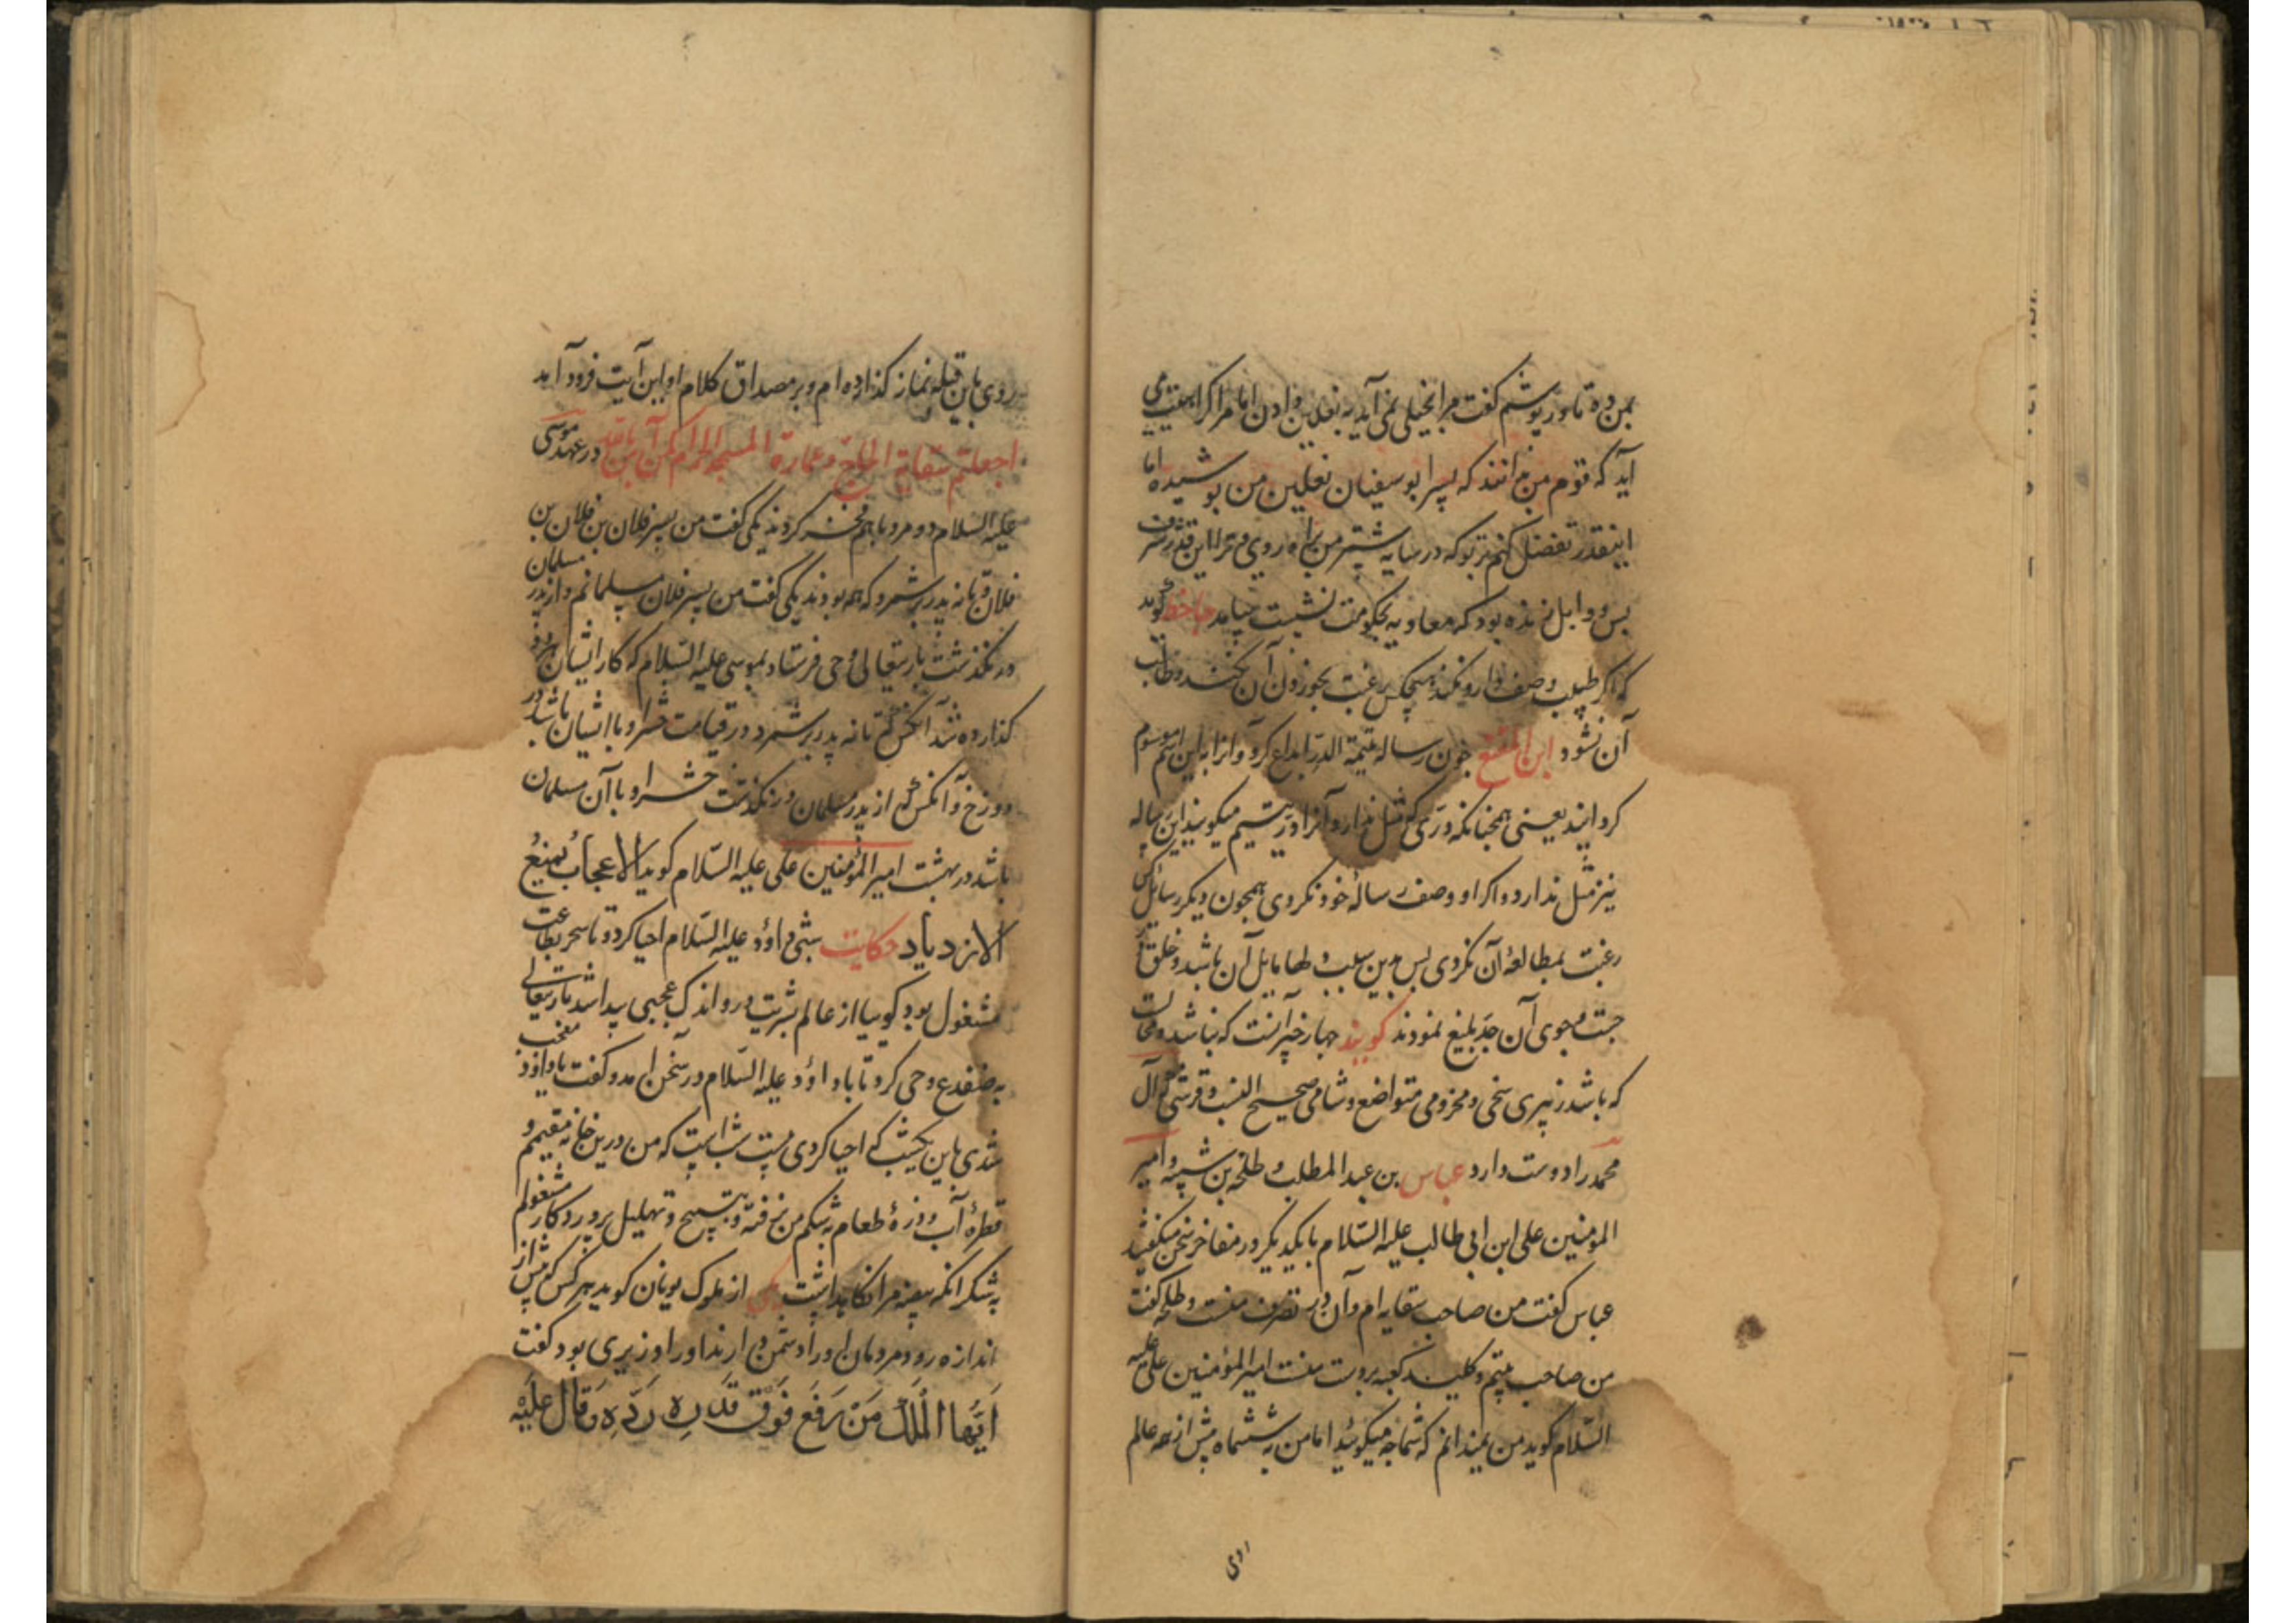 بمن ده تا در پوشم کفت مرا بخیلی نمی آید به نعلین دادن اما مرا کراهیت می
آید که قوم من دانند که پسر ابو سفیان نعلین من پوشیده اما
اینقدر تفضل کنم بتو که در سایه شتر من براه روی و ترا این قدر شرف
بس و وابل زنده بود که معاویه بحکومت نشست بیامد جاحظ کوید
که اکر طبیب وصف دارو نکند هیچکس رغبت بخوردن آن نکند و طالب
آن نشود ابن المقفع چون رساله یتیمة الدر ابداع کرد و آنرا باین اسم موسوم
کردانید یعنی همچنانکه دری که مثل ندارد و آنرا در یتیم میکویند این رساله
نیز مثل ندارد و اکر او وصف رسالهٔ خود نکردی همچون دیکر رسائل کس
رغبت بمطالعهٔ آن نکردی پس بدین سبب دلها مایل آن باشد و خلق در
جست و جوی آن جد بلیغ نمودند کویند چهار خبر آنست که نباشد و محالست
که باشد زبیری سخی و مخزومی متواضع و شامی صحیح النسب و قرشی که آل
محمد را دوست دارد عباس بن عبد المطلب و طلحه بن شیبه و امیر
المؤمنین علی ابن ابی طالب علیه السلام با یکدیکر در مفاخر سخن میکفتند
عباس کفت من صاحب سقایه ام و آن در تصرف منست و طلحه کفت
من صاحب بیتم و کلید کعبه بدست منست امیر المؤمنین علی علیه
السلام کوید من نمیدانم که شما چه میکوئید اما من به ششماه پیش از همه عالم
روی
روی باین قبله نماز کذارده ام و بر مصداق کلام او این آیت فرود آمد
اجعلتم سقایة الحاج و عمارة المسجد الحرام کمن آمن بالله در عهد موسی
علیه السلام دو مرد با هم فخر کردند یکی کفت من پسر فلان بن فلان بن
فلان و تا نه پدر بر شمرد که همه بودند یکی کفت من پسر فلان مسلمانم و از پدر مسلمان
در نکذشت باریتعالی وحی فرستاد بموسی علیه السلام که کار ایشان
کذارده شد آنکس که تا نه پدر بر شمرد در قیامت حشر او با ایشان باشد در
دوزخ و آنکس که از پدر مسلمان در نکذشت حشر او با آن مسلمان
باشد در بهشت امیر المؤمنین علی علیه السلام کوید الاعجاب یمنع
الازدیاد حکایت شبی داود علیه السلام احیا کرد و تا سحر بطاعت
مشغول بود کوییا از عالم بشریت درو اندک عجبی پیدا شد باریتعالی
به ضفدع وحی کرد تا با داود علیه السلام در سخن آمد و کفت یا داود معجب
شدی باین یکشب که احیا کردی بیست شب است که من درین خانه مقیمم و
قطرهٔ آب و ذرهٔ طعام به شکم من نرفته و بتسبیح و تهلیل پروردکار مشغولم
به شکر آنکه بیضه مرا نکاهداشت یکی از ملوک یونان کوید هر کس که بیش از
اندازه رود مردمان او را دشمن دارند او را وزیری بود کفت
اَیُّهَا الْمَلِکُ مَنْ رَفَعَ فَوْقَ قَدْرِهِ رَدَّهُ وَقَالَ عَلَیْهِ